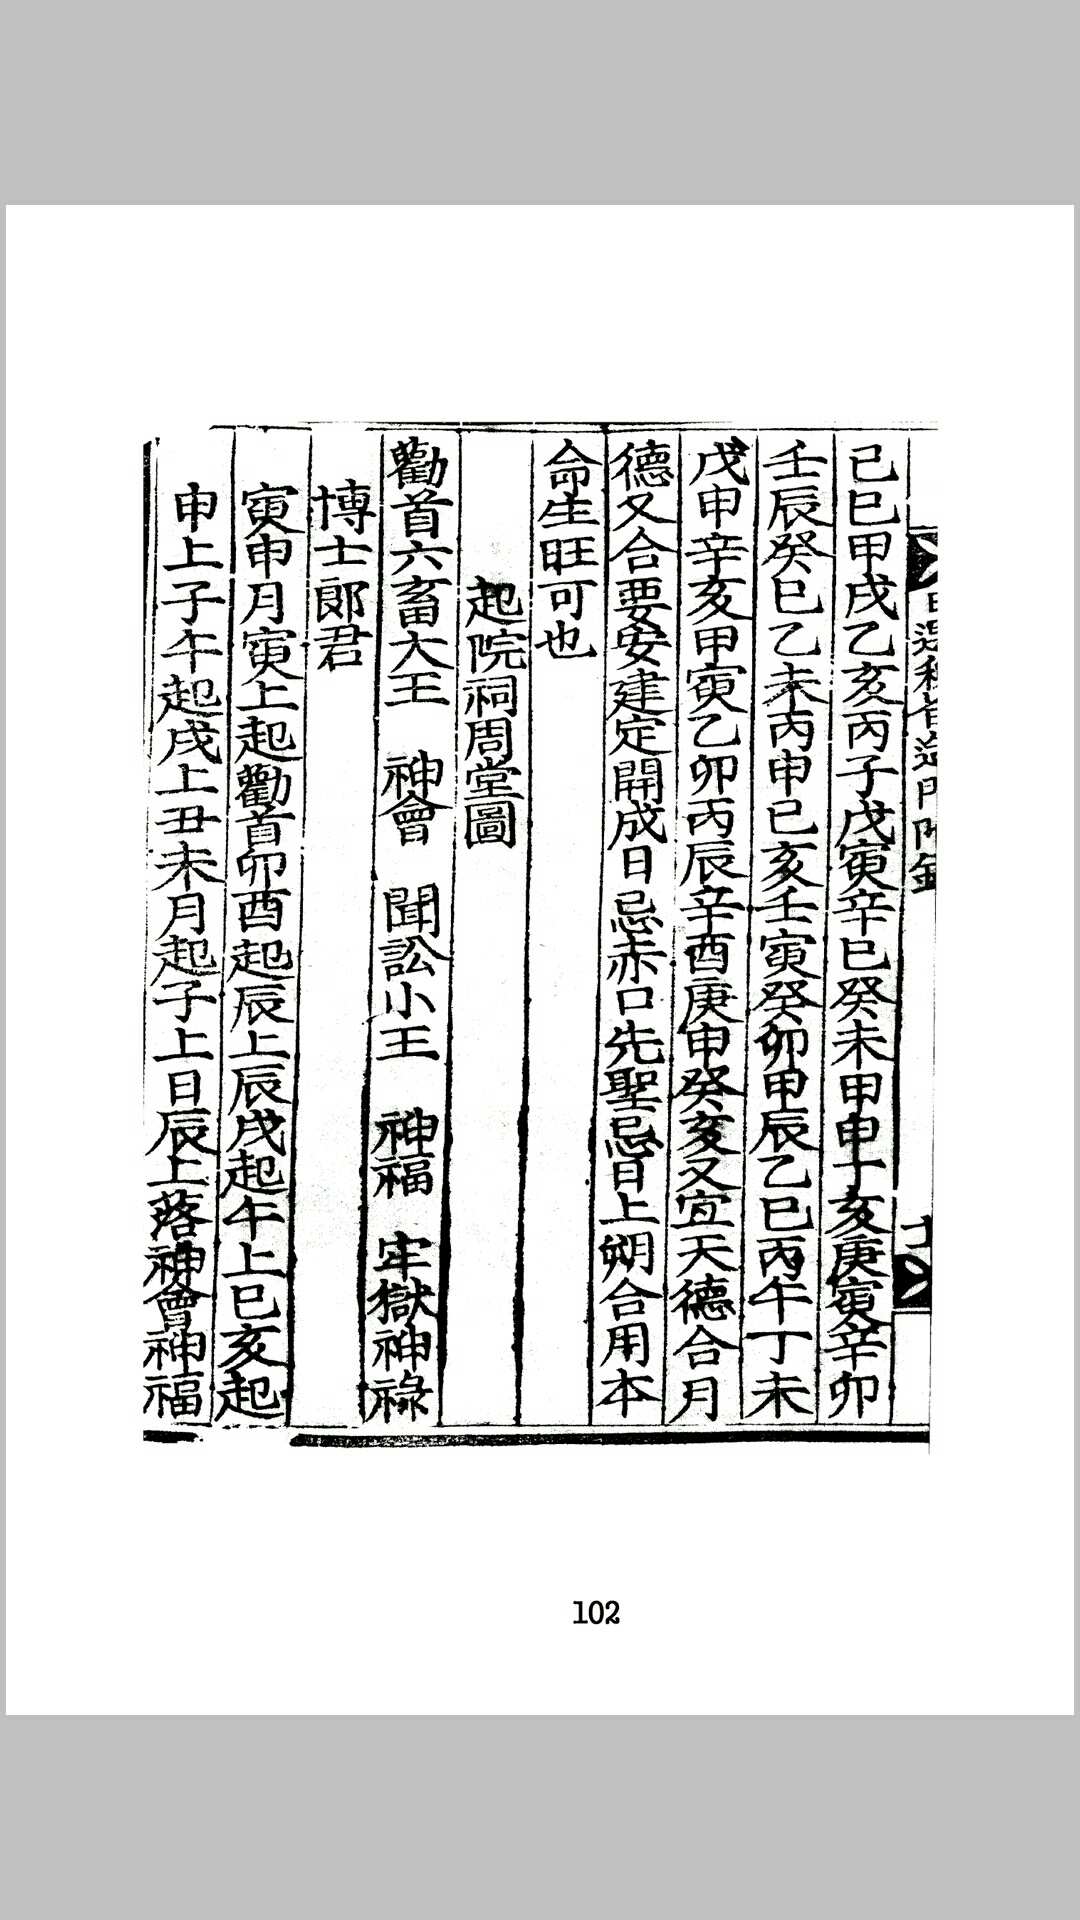 己巳甲戌乙亥丙子戊寅辛巳癸未甲申丁亥庚寅辛卯
壬辰癸巳乙未丙申己亥壬寅癸卯甲辰乙巳丙午丁未
戊申辛亥甲寅乙卯丙辰辛酉庚申癸亥又宜天德合月
德又合要安建定開成日忌赤口先聖忌日上朔合用本
命生旺可也
起院祠周堂圖
勸首六畜大王　神會　聞訟小王　神福　牢獄神祿
博士郎君
寅申月寅上起勸首卯酉起辰上辰戌起午上巳亥起
申上子午起戌上丑未月起子上日辰上落神會神福
102